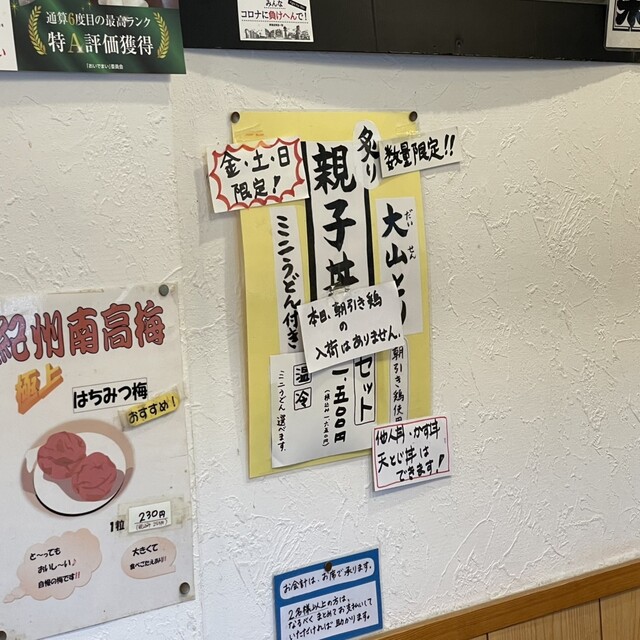 通算6度目の最高ランク
特A評価獲得
「おいでまい」委員会
みんな
コロナに負けへんで!
数量限定!!
金・土・日
限定!
炙り
親子丼
セット
一.五〇〇円
だいせん
大山とり
朝引き鶏使用
ミニうどん付き
温
冷
ミニうどん選べます。
本日、朝引き鶏
の
入荷はありません。
他人丼・かす丼
天とじ丼は
できます!
紀州南高梅
極上
はちみつ梅
おすすめ!
1粒
230円
と〜っても
おいし〜い♪
自慢の梅です!!
大きくて
食べごたえあり!!
お会計は、お席で承ります。
2名様以上の方は、
なるべくまとめてお支払いして
いただければ助かります。